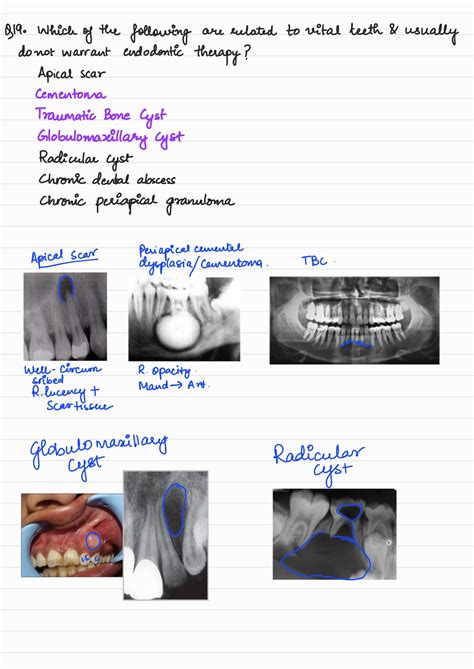 Q19. Which of the following are related to vital teeth & usually
do not warrant endodontic therapy?
Apical scar
Cementoma
Traumatic Bone Cyst
Globulomaxillary Cyst
Radicular cyst
Chronic dental abscess
Chronic periapical granuloma
Apical scar
Periapical cemental
dysplasia/Cementoma.
TBC.
Well-Circum
scribed
R.lucency +
Scar tissue
R. Opacity.
Mand → Ant.
Globulomaxillary
Cyst
Radicular
cyst